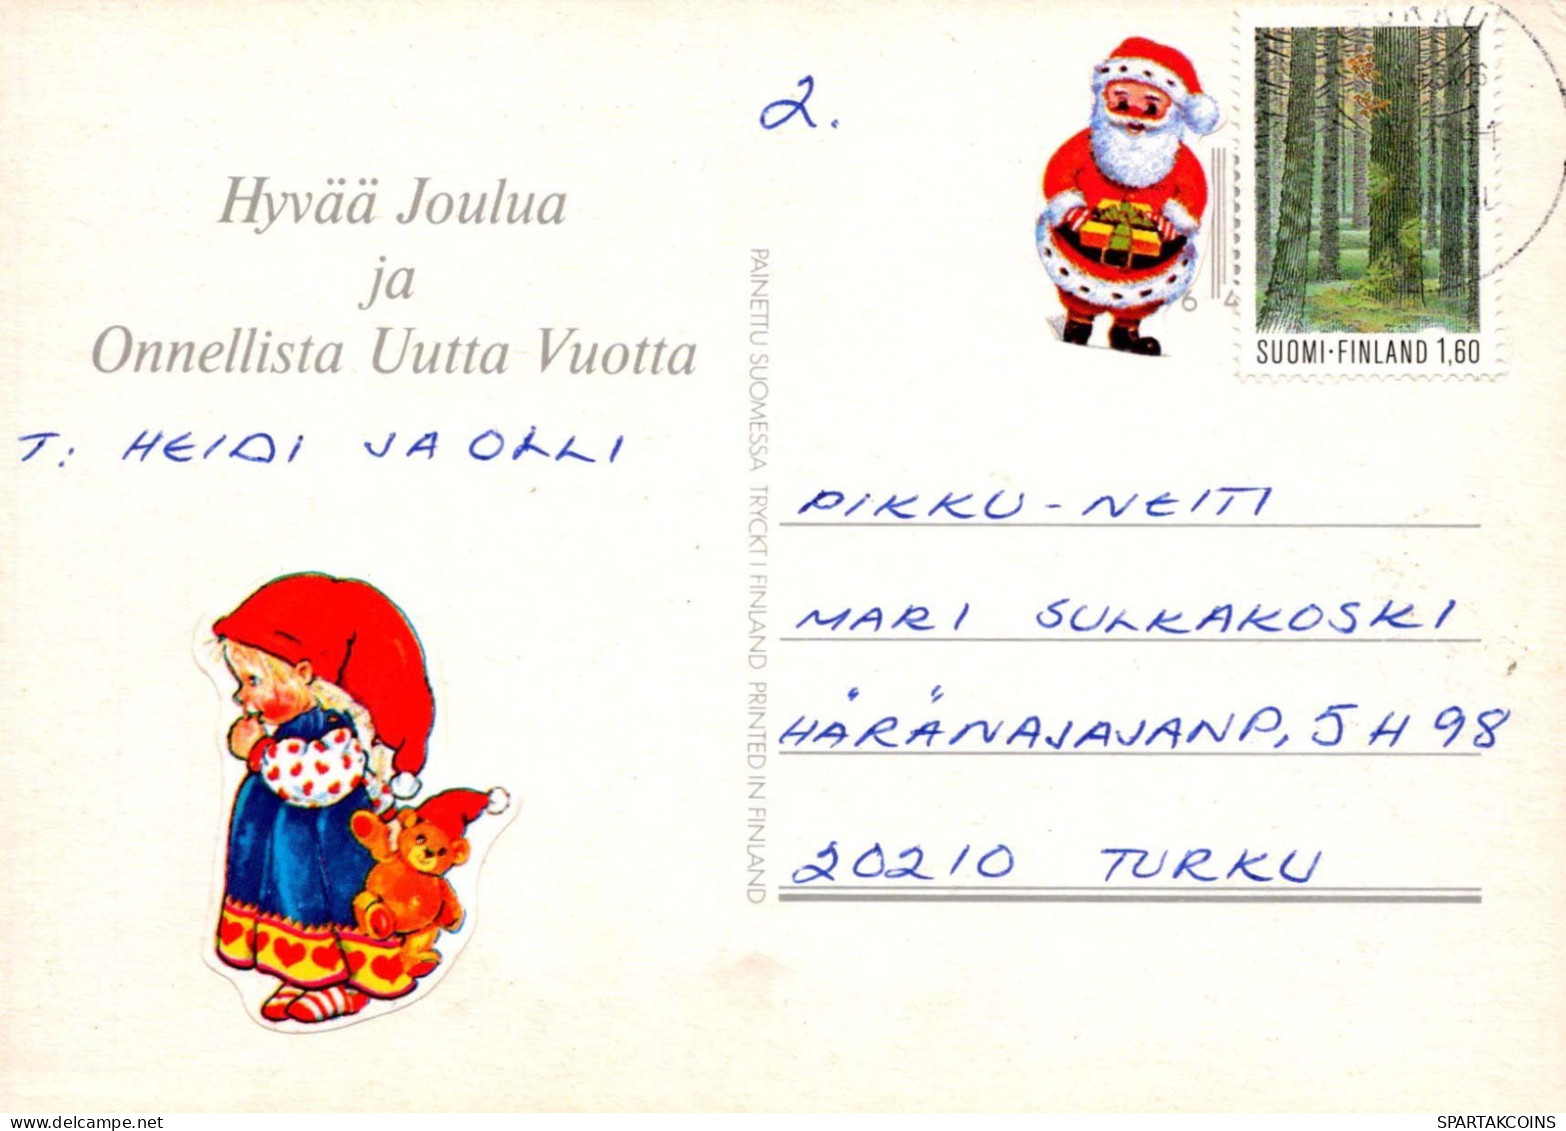 2.
Hyvää Joulua
ja
Onnellista Uutta Vuotta
T: HEIDI JA OLLI
PAINETTU SUOMESSA TRYCKT I FINLAND PRINTED IN FINLAND
6 4
SUOMI·FINLAND 1,60
PIKKU-NEITI
MARI SULKAKOSKI
HÄRÄNAJAJANP, 5 H 98
20210 TURKU
SPARTAKCOINS